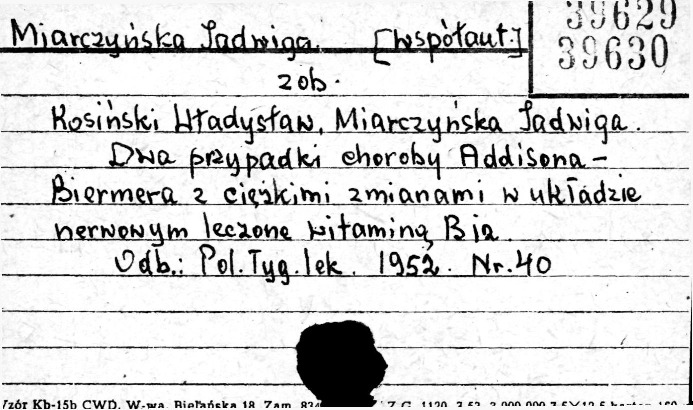 39629
Miarczyńska Jadwiga. [współaut.]
39630
zob.
Kosiński Władysław, Miarczyńska Jadwiga.
Dwa przypadki choroby Addisona-
Biermera z ciężkimi zmianami w układzie
nerwowym leczone witaminą B12.
Odb.: Pol.Tyg.lek. 1952. Nr.40
Wzór Kb-15b CWD, W-wa, Bielańska 18 Zam. Z.G. 1120 3.53 3.000.000 7,5×12,5